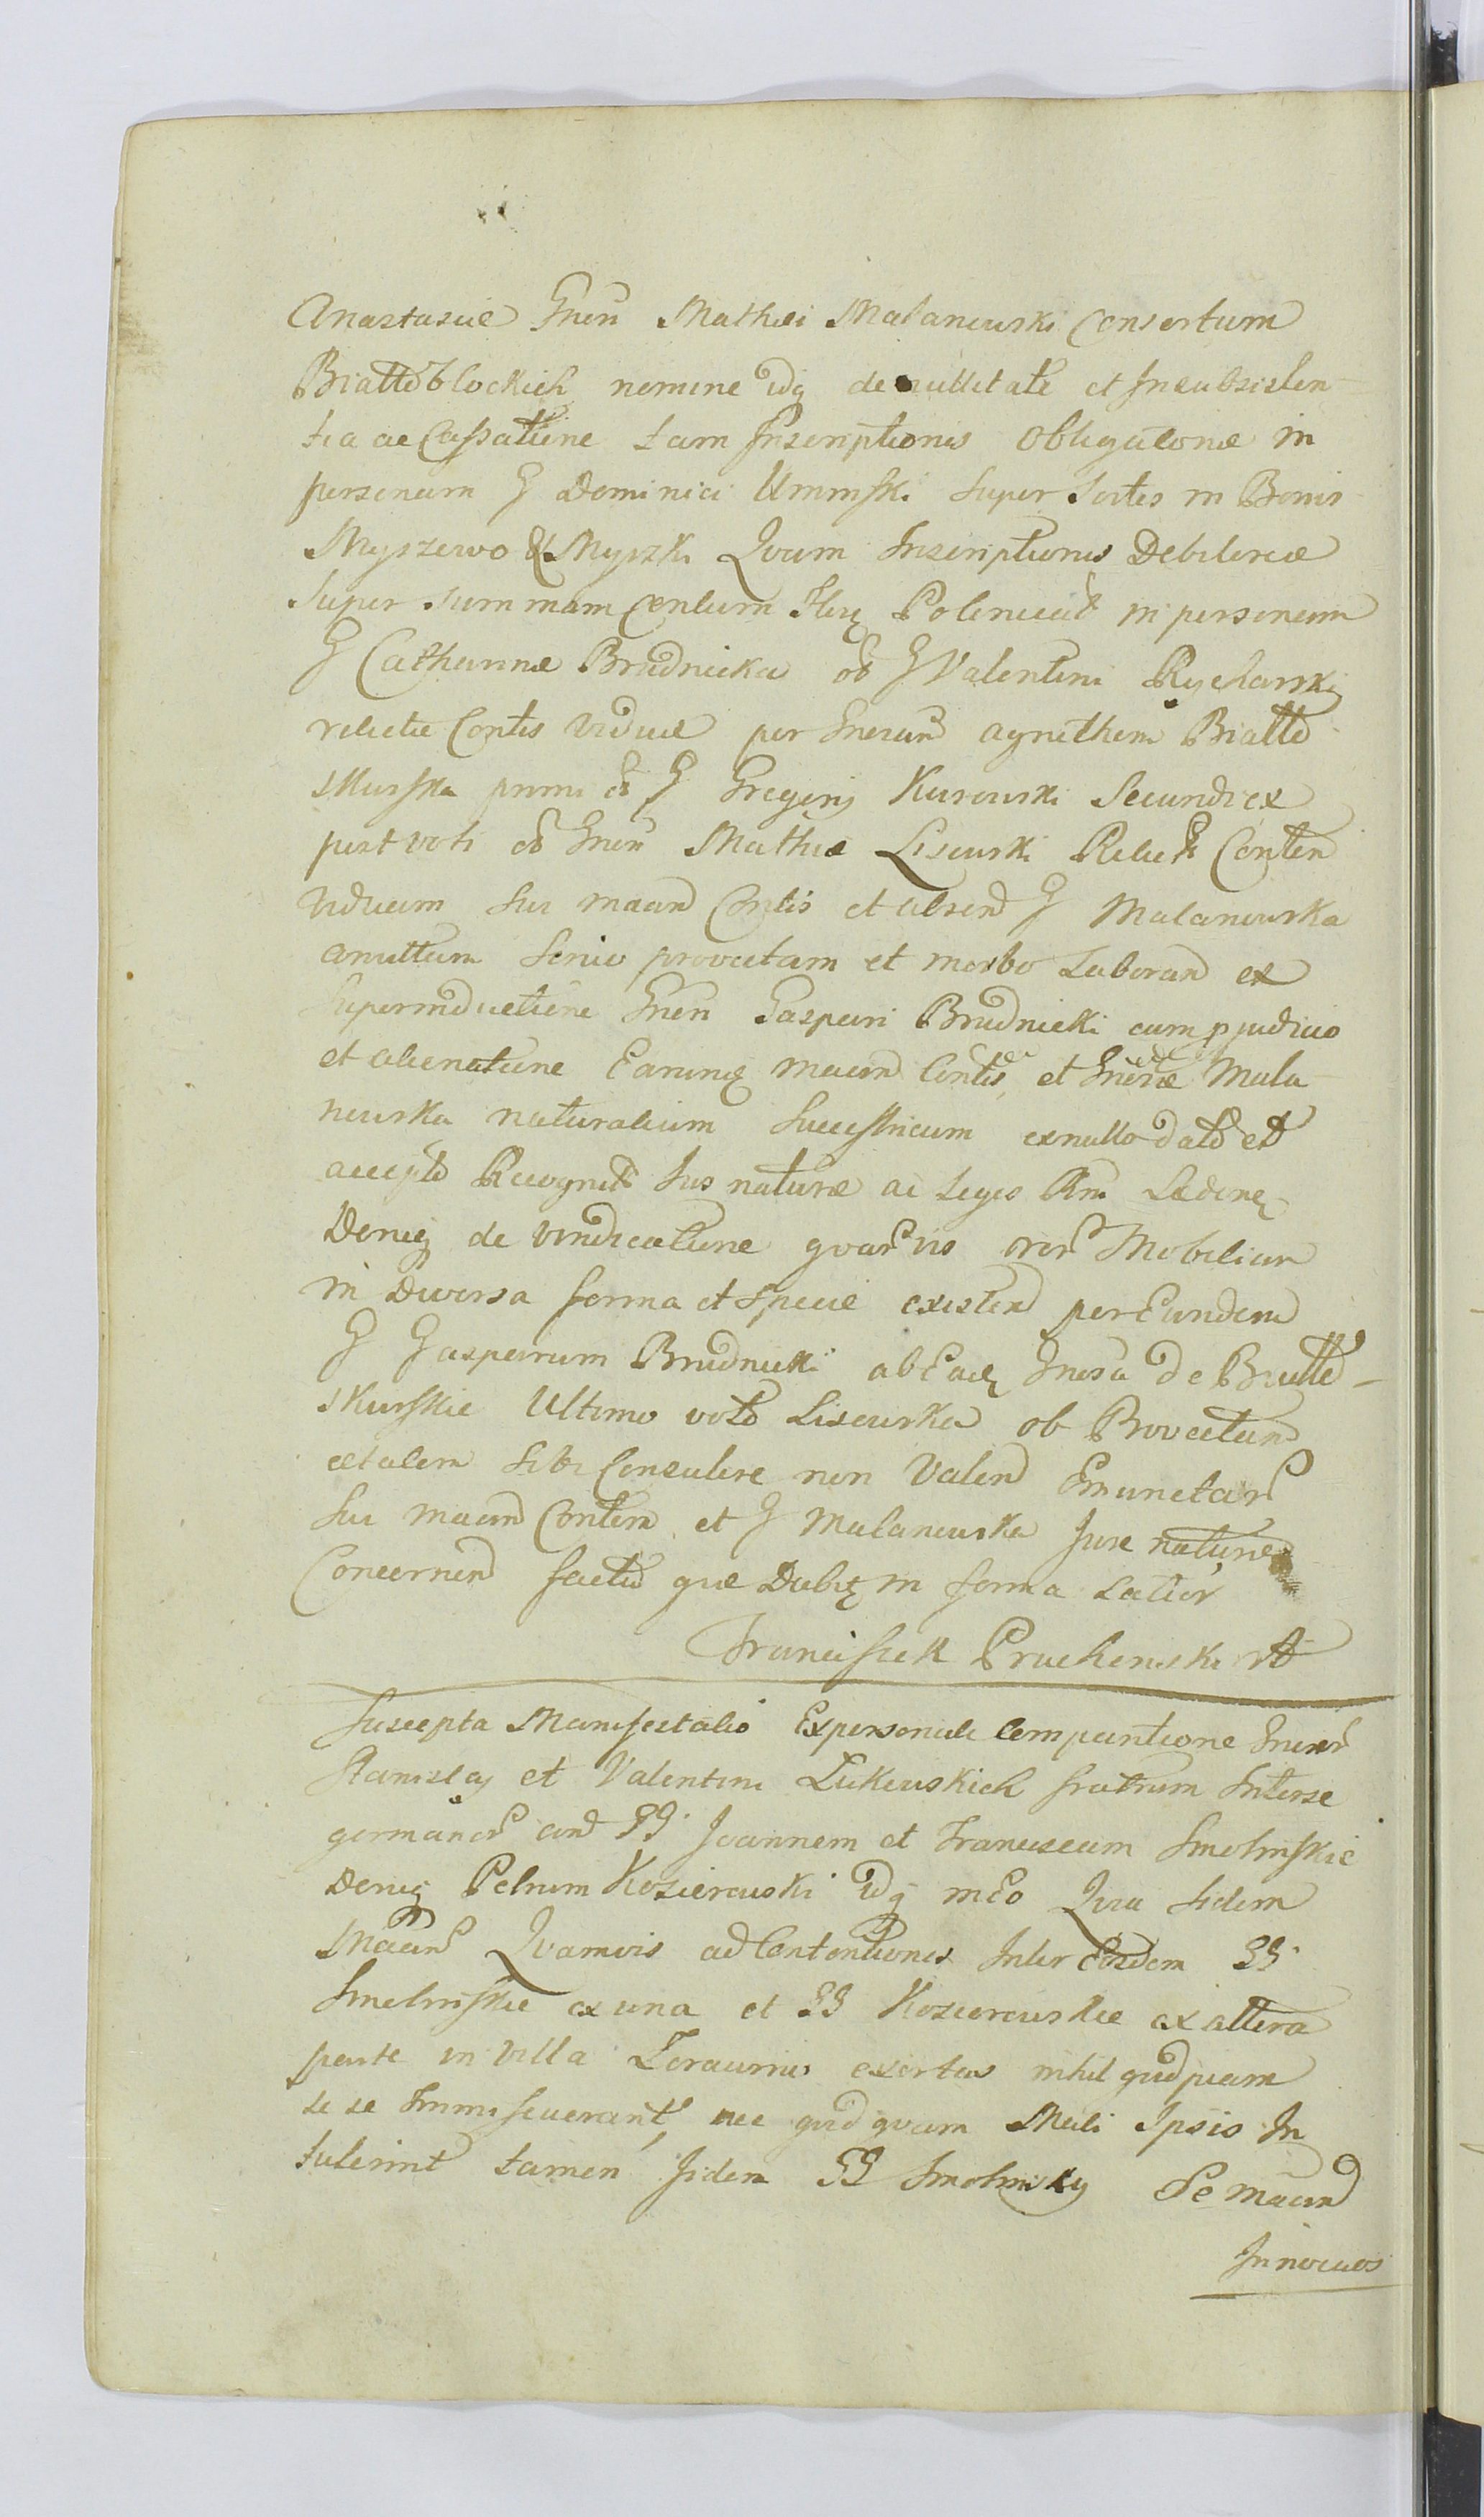 Anastasiæ Gnen Mathæi Malanowski Consortum
Białłobłockich nomine idq de nullitate et Insubsisten-
tia ac Cassatione tam Inscriptionis Obligatoriæ in
personam G Dominici Uminski super Sortes in Bonis
Myszewo & Myszki Qvam Inscriptionis Debitoriæ
super summam Centum Flrq Polonical in personam
G Catharinæ Brudnicka ob G Valentini Rycharski
relictæ Contis viduæ per Gnerand Agnethem Białło
skurska primi ob G Gregorij Kurowski Secundi ex
post voti ob Gnen Mathiæ Lisewski Relict Conten
viduam sui maand Contis et absend G Malanowska
amittam senio provectam et morbo Laborand ex
superinductione Gnen Gaspari Brudnicki cum pjudicio
et alienatione Earunq maand Contis et Gneræ Mala-
nowska naturalium Successricum ex nullo dato et
accepto Recognit Jus naturæ ac Leges Rni Lædenq
Deniq de vindicatione qvarvis rer Mobilium
in Diversa forma et specie existend per Eundem
G Gasparum Brudnicki ab Eadq Gnosa de Białło-
skurskie Ultimo voto Lisewska ob Provectand
ætatem sibi Consulere non Valend Emunctar
sui maand Contem et G Malanowska Jure naturæ
Concernend factu quæ Debitq in forma Latior
Franciszek Pruchenski
Suscepta Manifestatio Ex personali Comparitione Gneror
Stanislaj et Valentini Lukowskich fratrum Interse
germanor cond GG Joannem et Franciscum Smolinskie
Deniq Petrum Kozierowski idq in Eo Qvia iidem
Maand Qvamvis ad Contentiones Inter Eosdem GG
Smolinskie ex una et GG Kozierowskie ex altera
parte in villa exortas nihil quidpiam
se se Immiscuerant, nec quidqvam Mali Ipsis In
tulerint tamen Iidem GG Smolinsky Se maand
Innocuos